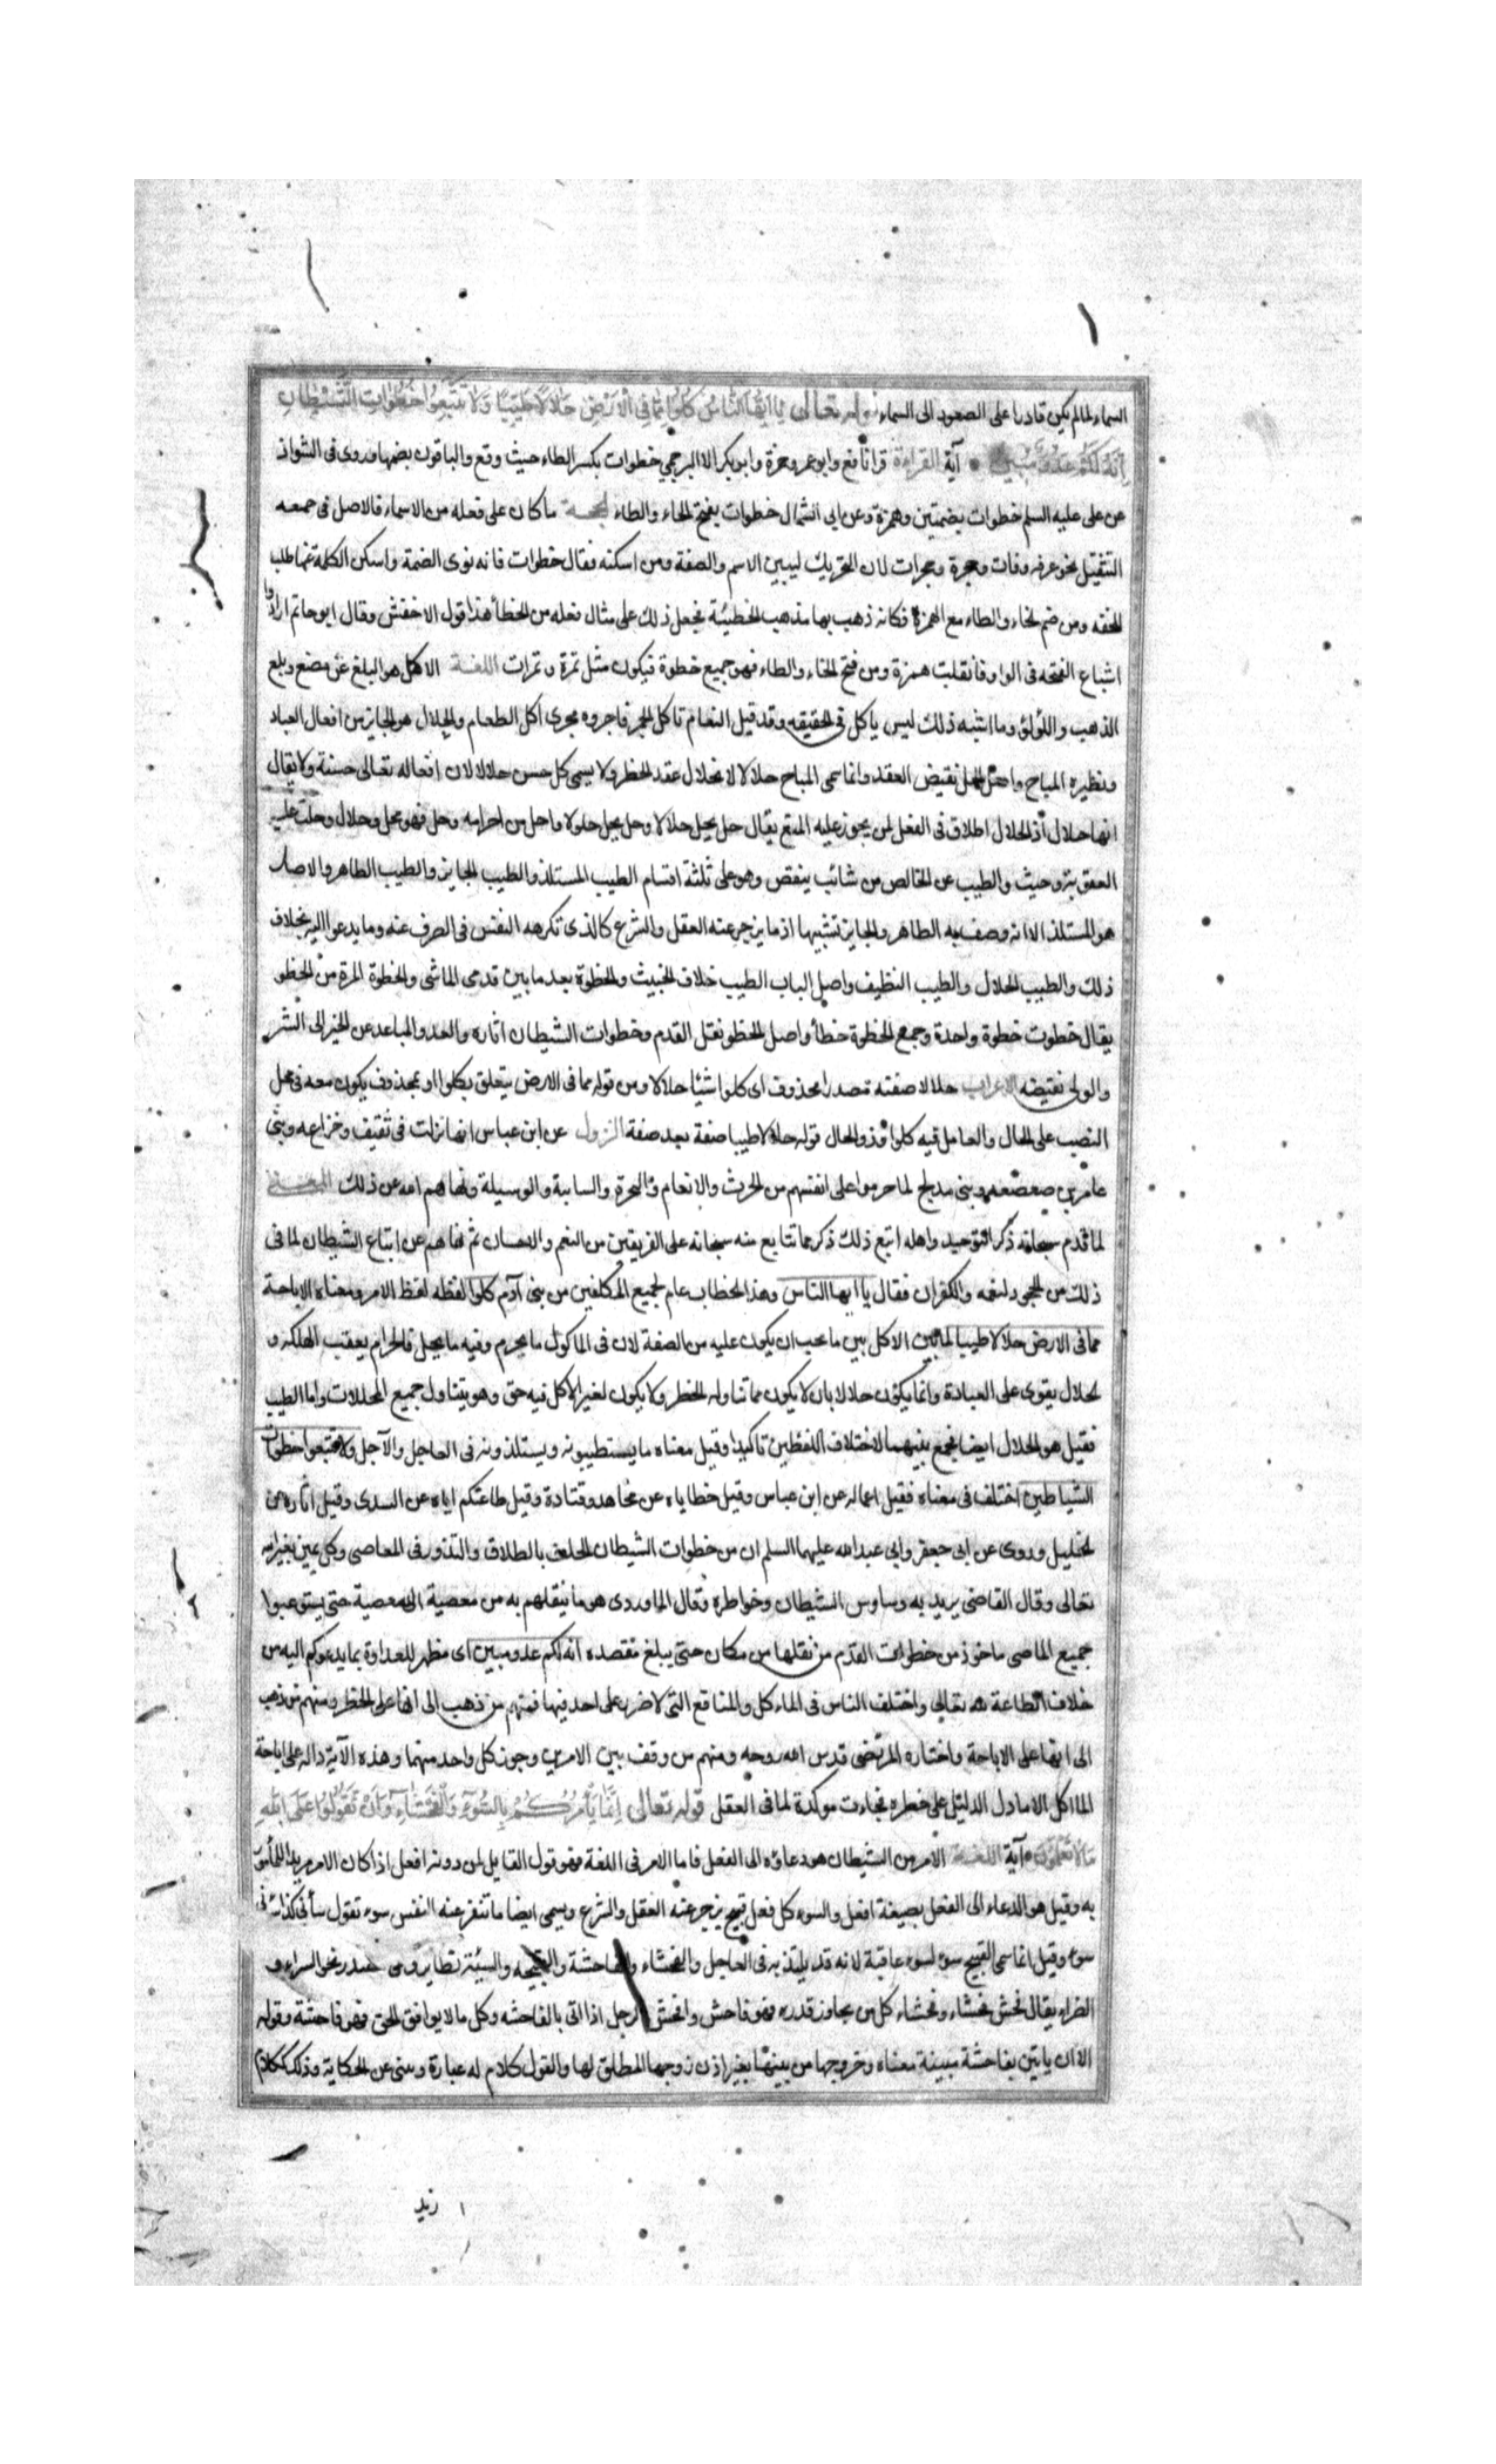 السماء لما لم يكن قادرا على الصعود الى السماء قوله تعالى يا ايها الناس كلوا مما في الارض حلالا طيبا ولا تتبعوا خطوات الشيطان
انه لكم عدو مبين آية القراءة قرا نافع وابو عمرو وحمزة وابو بكر الا البرجمي خطوات بسكر الطاء حيث وقع والباقون بضمها وروى في الشواذ
عن على عليه السلم خطوات بضمتين وهمزة وعن ابى السمال خطوات بفتح الخاء والطاء الحجة ما كان على فعله من الاسماء فالاصل في جمعه
التثقيل نحو غرفه وغرفات وحجرة وحجرات لان التحريك ليبين الاسم والصفة ومن اسكنه فقال خطوات فانه نوى الضمة واسكن الكلمة عنها طلب
للخفه ومن ضم الخاء والطاء مع الهمزة فكانه ذهب بها مذهب الخطيئة فجعل ذلك على مثال فعله من الخطأ هذا قول الاخفش وقال ابو حاتم ارادوا
اشباع الفتحه في الواو فانقلبت همزة ومن فتح الخاء والطاء فهو جميع خطوة فيكون مثل تمرة وتمرات اللغة الاكل هو البلع عن مضغ وبلع
الذهب واللؤلؤ وما اشبه ذلك ليس ياكل في الحقيقه وقد قيل النعام تاكل الجمر فاجروه مجرى اكل الطعام والحلال هو الجايز من افعال العباد
ونظيره المباح واصل الحل نقيض العقد وانما سمى المباح حلالا لانحلال عقد الحظر ولا يسمى كل حسن حلالا لان افعاله تعالى حسنة ولا يقال
انها حلال اذ الحلال اطلاق في الفعل لمن يجوز عليه المنع يقال حل يحل حلالا وحل يحل حلولا وحل من احرامه وحل فهو محل وحلال وحلت عليه
العقوبة وحيث والطيب عن الخالص من شائب ينغص وهو على ثلثة اقسام الطيب المستلذ والطيب الجايز والطيب الطاهر والاصل
هو المستلذ الا انه وصف به الطاهر والجايز تشبيها اذ ما يزجر عنه العقل والشرع كالذى تكرهه النفس في الصرف عنه وما يدعوا اليه بخلاف
ذلك والطيب الحلال والطيب النظيف واصل الباب الطيب خلاف الخبيث والخطوة بعد ما بين قدمى الماشى والخطوة المرة من الخطو
يقال خطوت خطوة واحدة وجمع الخطوة خطأ واصل الخطو نقل القدم وخطوات الشيطان اثاره والعدو المباعد عن الخير الى الشر
والولى نقيضه الاعراب حلالا صفته مصدر محذوف اى كلوا شيئا حلالا ومن قوله مما في الارض يتعلق بكلوا او بمحذوف يكون معه في محل
النصب على الحال والعامل فيه كلوا وذو الحال قوله حلالا طيبا صفة بعد صفة النزول عن ابن عباس انها نزلت في ثقيف وخزاعه وبنى
عامر بن صعصعه وبنى مدلج لما حرموا على انفسهم من الحرث والانعام والبحرة والسايبة والوسيلة ونهاهم الله عن ذلك المعنى
لما قدم سبحانه ذكر التوحيد واهله اتبع ذلك ذكر ما تتابع منه سبحانه على الفريقين من النعم والاحسان ثم نهاهم عن اتباع الشيطان لما في
ذلك من الجحود لنعمه والكفران فقال يا ايها الناس وهذا الخطاب عام لجميع المكلفين من بنى آدم كلوا لفظه لفظ الامر ومعناه الاباحة
مما في الارض حلالا طيبا لما بين الاكل بين ما يجب ان يكون عليه من الصفة لان في الماكول ما يحرم وفيه ما يحل فالحرام يعقب الهلكة و
الحلال يقوى على العبادة وانما يكون حلالا بان لا يكون مما تناوله الخطر ولا يكون لغير الاكل فيه حق وهو يتناول جميع المحللات واما الطيب
فقيل هو الحلال ايضا فجمع بينهما لاختلاف اللفظين تاكيدا وقيل معناه ما يستطيبونه ويستلذونه في العاجل والآجل ولا تتبعوا خطوات
الشياطين اختلف في معناه فقيل اعماله عن ابن عباس وقيل خطاياه عن مجاهد وقتادة وقيل طاعتكم اياه عن السدى وقيل اثاره عن
الخليل وروى عن ابى جعفر وابى عبدالله عليهما السلم ان من خطوات الشيطان الحلف بالطلاق والنذور في المعاصى وكل يمين بغير الله
تعالى وقال القاضى يريد به وساوس الشيطان وخواطره وقال الماوردى هو ما ينقلهم به من معصية الى معصية حتى يستوعبوا
جميع المعاصى ماخوذ من خطوات القدم من نقلها من مكان حتى يبلغ مقصده انه لكم عدو مبين اى مظهر للعداوة بما يدعوكم اليه من
خلاف الطاعة لله تعالى واختلف الناس في الماء كل والمنافع التى لا ضرر على احد فيها فمنهم من ذهب الى انها على الحظر ومنهم من ذهب
الى انها على الاباحة واختاره المرتضى قدس الله روحه ومنهم من وقف بين الامرين وجوز كل واحد منهما وهذه الآية دالة على اباحة
الماكل الا ما دل الدليل على حظره فجاءت موكدة لما في العقل قوله تعالى انما يأمركم بالسوء والفحشاء وان تقولوا على الله
ما لا تعلمون آية اللغة الامر من الشيطان هو دعاؤه الى الفعل فاما الامر في اللغة فهو قول القايل لمن دونه افعل اذا كان الامر مريدا للمأمور
به وقيل هو الدعاء الى الفعل بصيغة افعل والسوء كل فعل قبيح يزجر عنه العقل والشرع ويسمى ايضا ما تنفر عنه النفس سوء تقول سأنى كذا
سوء وقيل انما سمى القبيح سوء لسوء عاقبة لانه قد يلتذ به في العاجل والفحشاء والفاحشة والقبيحه والسيئة نظاير وهى مصدر نحو السراء و
الضراء يقال فحش فحشاء وفحشاء كل من تجاوز قدره فهو فاحش وافحش الرجل اذا اتى بالفاحشه وكل ما لا يوافق الحق فهو فاحشة وقوله
الا ان ياتين بفاحشة مبينة معناه وخروجها من بيتها بغير اذن زوجها المطلق لها والقول كلام له عبارة وينبى عن الحكاية وذلك ككلام
زيد